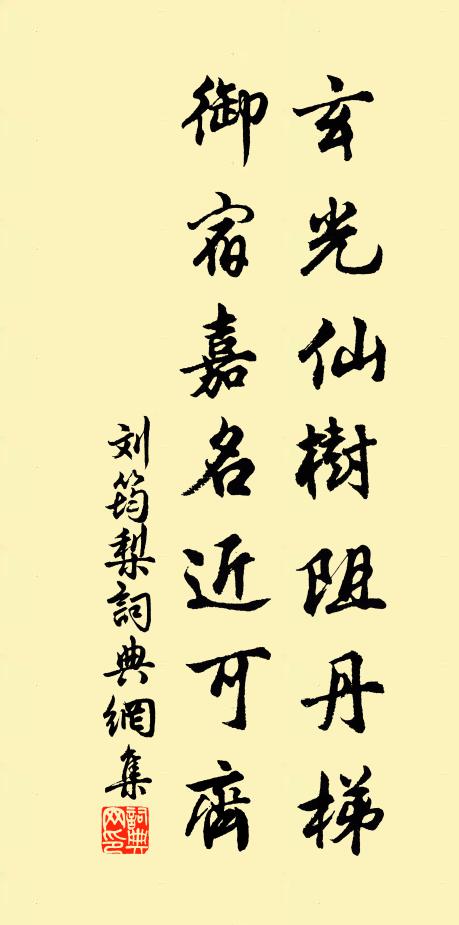 玄光仙樹阻丹梯
御宿嘉名近可齊
刘筠梨詞典網集
詞典网印